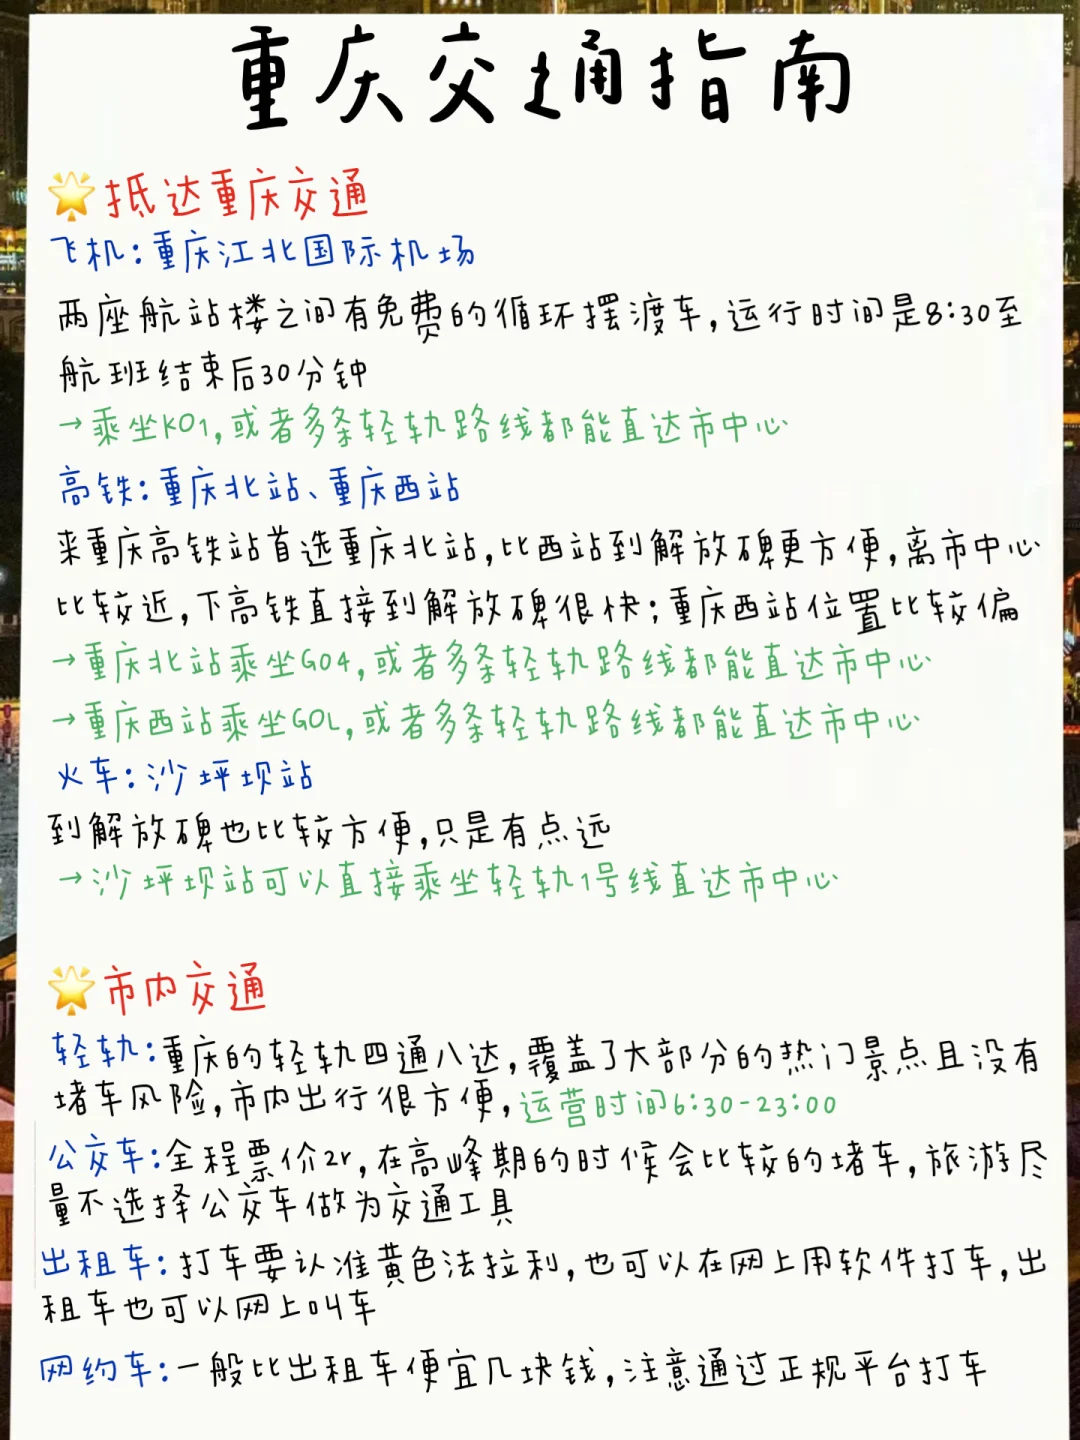 重庆交通指南
抵达重庆交通
飞机:重庆江北国际机场
两座航站楼之间有免费的循环摆渡车,运行时间是8:30至
航班结束后30分钟
→乘坐K01,或者多条轻轨路线都能直达市中心
高铁:重庆北站、重庆西站
来重庆高铁站首选重庆北站,比西站到解放碑更方便,离市中心
比较近,下高铁直接到解放碑很快;重庆西站位置比较偏
→重庆北站乘坐G04,或者多条轻轨路线都能直达市中心
→重庆西站乘坐G0L,或者多条轻轨路线都能直达市中心
火车:沙坪坝站
到解放碑也比较方便,只是有点远
→沙坪坝站可以直接乘坐轻轨1号线直达市中心
市内交通
轻轨:重庆的轻轨四通八达,覆盖了大部分的热门景点且没有
堵车风险,市内出行很方便,运营时间6:30-23:00
公交车:全程票价2r,在高峰期的时候会比较的堵车,旅游尽
量不选择公交车做为交通工具
出租车:打车要认准黄色法拉利,也可以在网上用软件打车,出
租车也可以网上叫车
网约车:一般比出租车便宜几块钱,注意通过正规平台打车